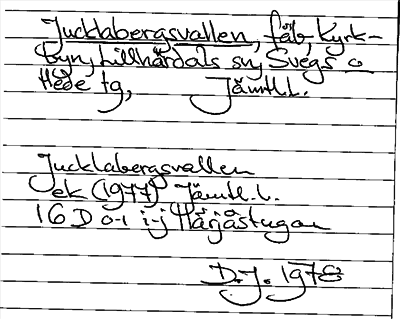 Jucklabergsvallen, fäb, Kyrk-
byn, Lillhärdals sn, Svegs o
Hede tg, Jämtl.l.
Jucklabergsvallen
ek (1977) Jämtl.l.
16 D 0-1 i-j Härjåstugan
D.J. 1978